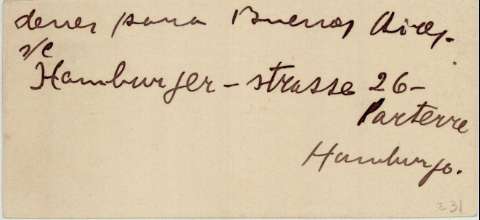 denes para Buenos Aires.
s/c
Hamburger-strasse 26-
Parterre
Hamburgo.
231